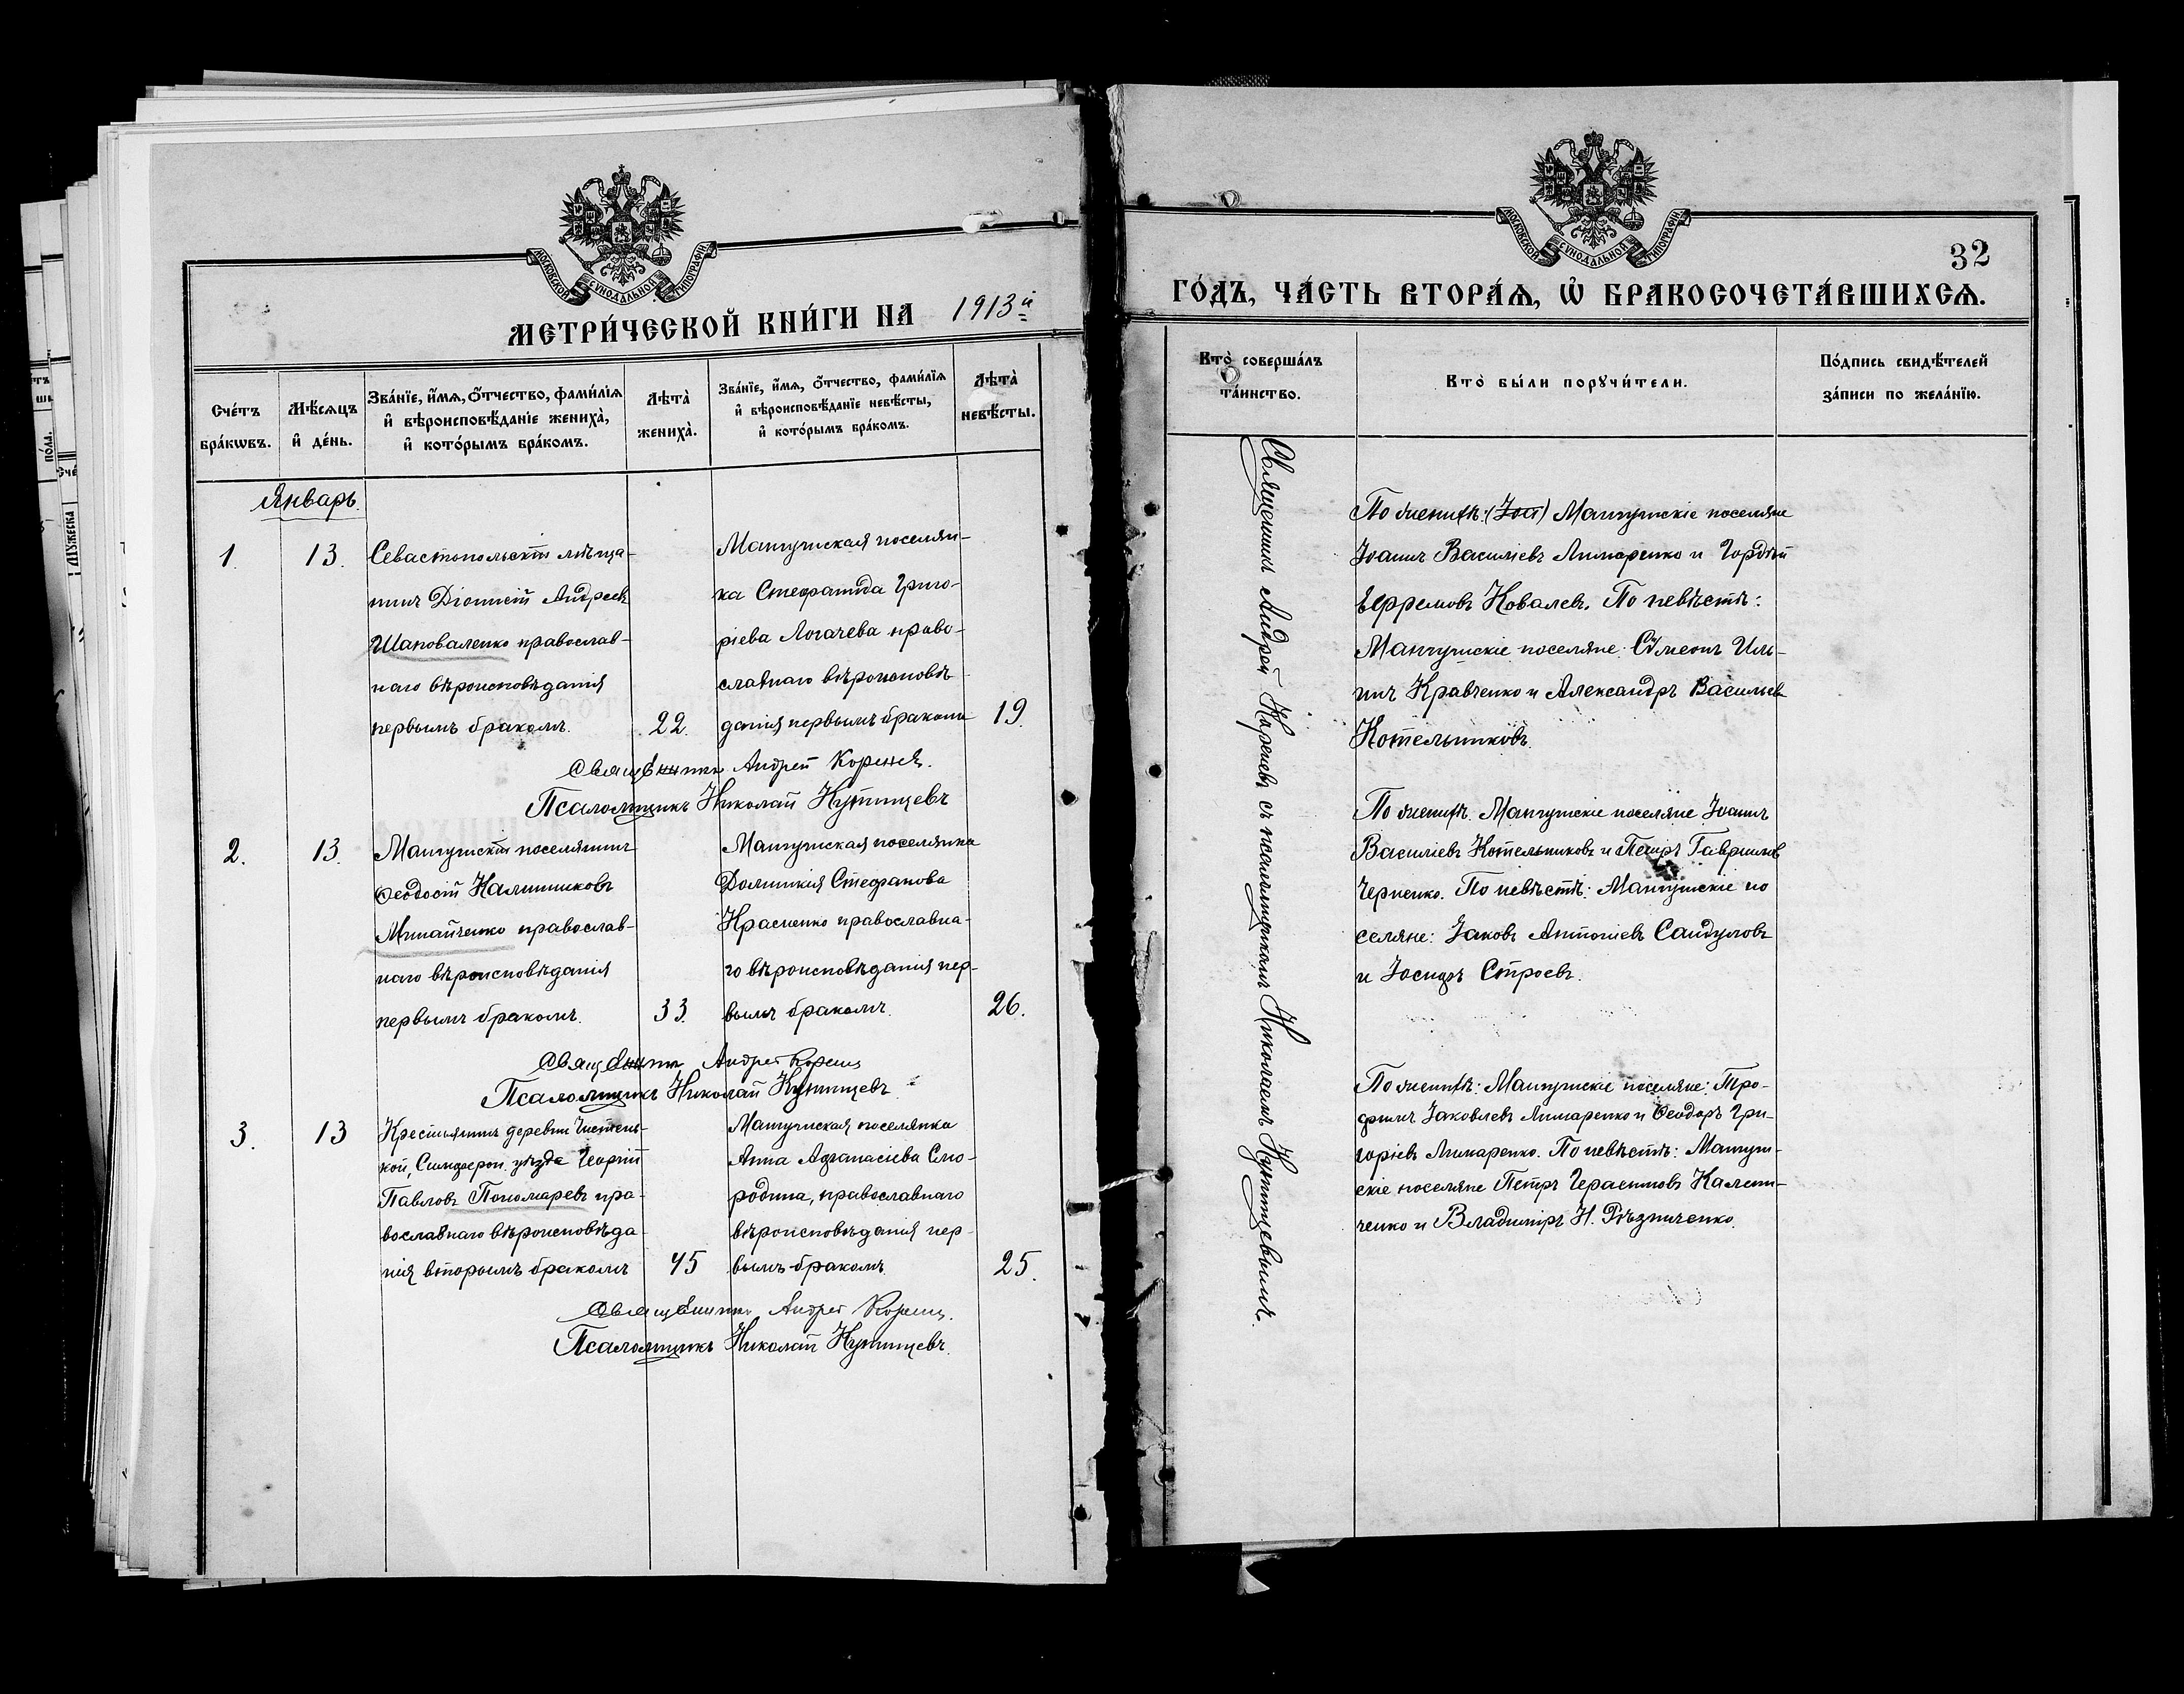 МОСКОВСКОЙ СѴНОДАЛЬНОЙ ТИПОГРАФІИ
МЕТРИ́ЧЕСКОЙ КНИ́ГИ НА 1913й
Сче́тъ бра́кѡвъ.
Мѣ́сяцъ и҆ де́нь.
Зва́нїе, и҆́мя, ѻ҆́тчество, фами́лїя и҆ вѣроисповѣ́данїе жениха̀, и҆ кото́рымъ бра́комъ.
Лѣта̀ жениха̀.
Зва́нїе, и҆́мя, ѻ҆́тчество, фами́лїя и҆ вѣроисповѣ́данїе невѣ́сты, и҆ кото́рымъ бра́комъ.
Лѣта̀ невѣ́сты.
Январь.
1. 13.
Севастопольскій мѣща-
нинъ Діонисій Андреевъ
Шаповаленко православ-
наго вѣроисповѣданія
первымъ бракомъ. 22.
Мангушская поселян-
ка Стефанида Григо-
ріева Логачева право-
славнаго вѣроисповѣ-
данія первымъ бракомъ 19.
Священникъ Андрей Кореневъ.
Псаломщикъ Николай Купитцевъ
2. 13.
Мангушскій поселянинъ
Ѳеодосій Калинниковъ
православ-
наго вѣроисповѣданія
первымъ бракомъ. 33.
Мангушская поселянка
Домникія Стефанова
Красненко православна-
го вѣроисповѣданія пер-
вымъ бракомъ. 26.
Священникъ Андрей
Псаломщикъ Николай
3. 13
Крестьянинъ деревни Чистень-
кой, Симфероп. уѣзда Георгій
Павловъ Пономаревъ пра-
вославнаго вѣроисповѣда-
нія вторымъ бракомъ 45
Мангушская поселянка
Анна Аѳанасіева Смо-
родина, православнаго
вѣроисповѣданія пер-
вымъ бракомъ. 25.
Священникъ Андрей
Псаломщикъ Николай
МОСКОВСКОЙ СѴНОДАЛЬНОЙ ТИПОГРАФІИ
32
ГО́ДЪ, ЧА́СТЬ ВТОРА́Ѧ, Ѡ҆ БРАКОСОЧЕТА́ВШИХСѦ.
Кто̀ соверша́лъ та́инство.
Кто̀ бы́ли порꙋчи́тели.
По́дпись свидѣ́телей за́писи по жела́нїю.
Священникъ Андрей Кореневъ съ псаломщикомъ Николаемъ
По женихѣ: (Іоа) Мангушскіе поселяне
Іоаннъ Василіевъ Лимаренко и Гордѣй
Ефремовъ Ковалевъ. По невѣстѣ:
Мангушскіе поселяне: Сѵмеонъ Иль-
инъ Кравченко и Александръ Васильев
Котельниковъ.
По женихѣ. Мангушскіе поселяне Іоаннъ
Василіевъ Котельниковъ и Петръ Гавриловъ
Черненко. По невѣстѣ: Мангушскіе по
селяне: Іаковъ Антоніевъ Сандуловъ
и Іосифъ Строевъ.
По женихѣ: Мангушскіе поселяне: Тро-
фимъ Іаковлевъ Лимаренко и Ѳеодоръ Гри-
горіевъ Лимаренко. По невѣстѣ: Мангуш-
скіе поселяне Петръ Герасимовъ Калени-
ченко и Владиміръ Н. Рѣзниченко.